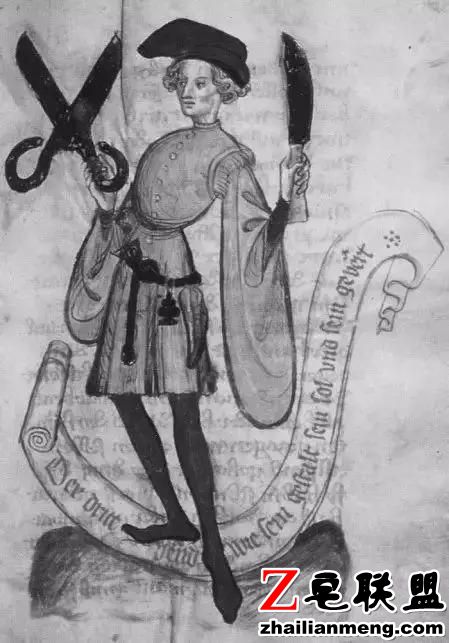 Der dritt vend wie sein gestalt sein sol vnd sein gevert
Z宅联盟
zhailianmeng.com